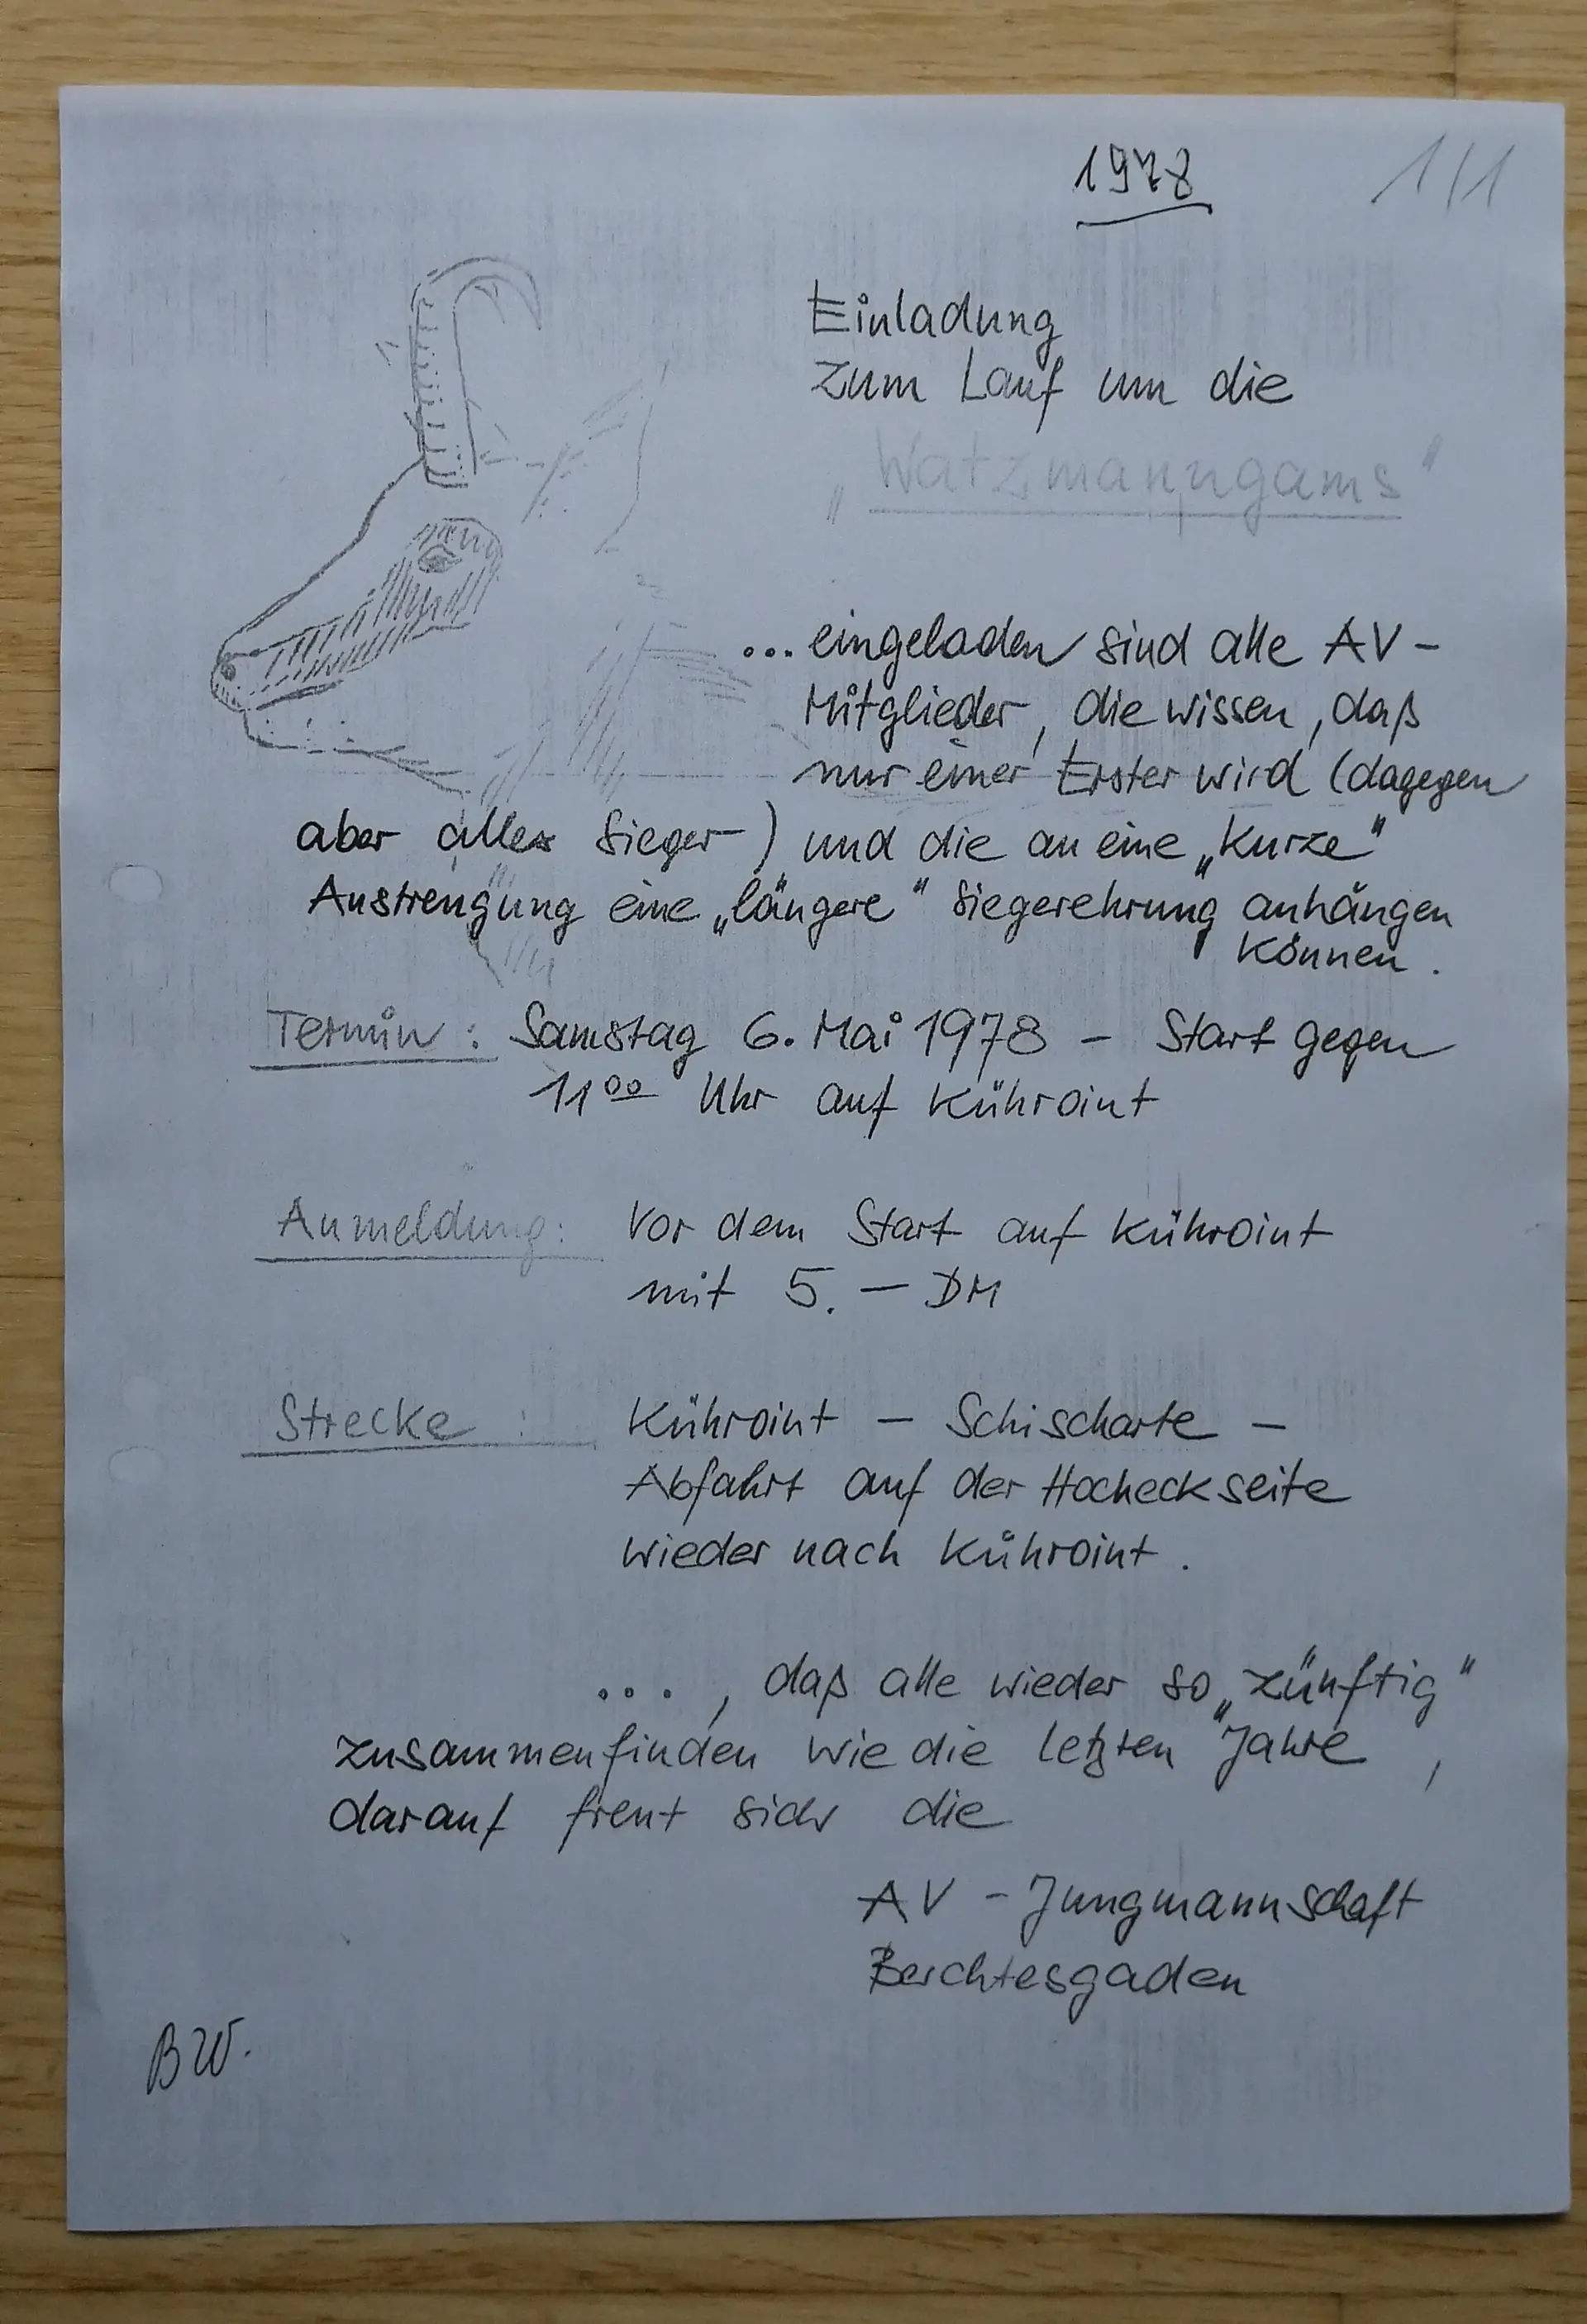 1978
1/1
Einladung
zum Lauf um die
„Watzmanngams"
... eingeladen sind alle AV-
Mitglieder, die wissen, daß
nur einer Erster wird (dagegen
aber alles Sieger) und die an eine „kurze"
Anstrengung eine „längere" Siegerehrung anhängen
können.
Termin: Samstag 6. Mai 1978 - Start gegen
11⁰⁰ Uhr auf Kühroint
Anmeldung: Vor dem Start auf Kühroint
mit 5.- DM
Strecke: Kühroint - Schischarte -
Abfahrt auf der Hocheckseite
wieder nach Kühroint.
..., daß alle wieder so „zünftig"
zusammenfinden wie die letzten Jahre,
darauf freut sich die
AV-Jungmannschaft
Berchtesgaden
BW.